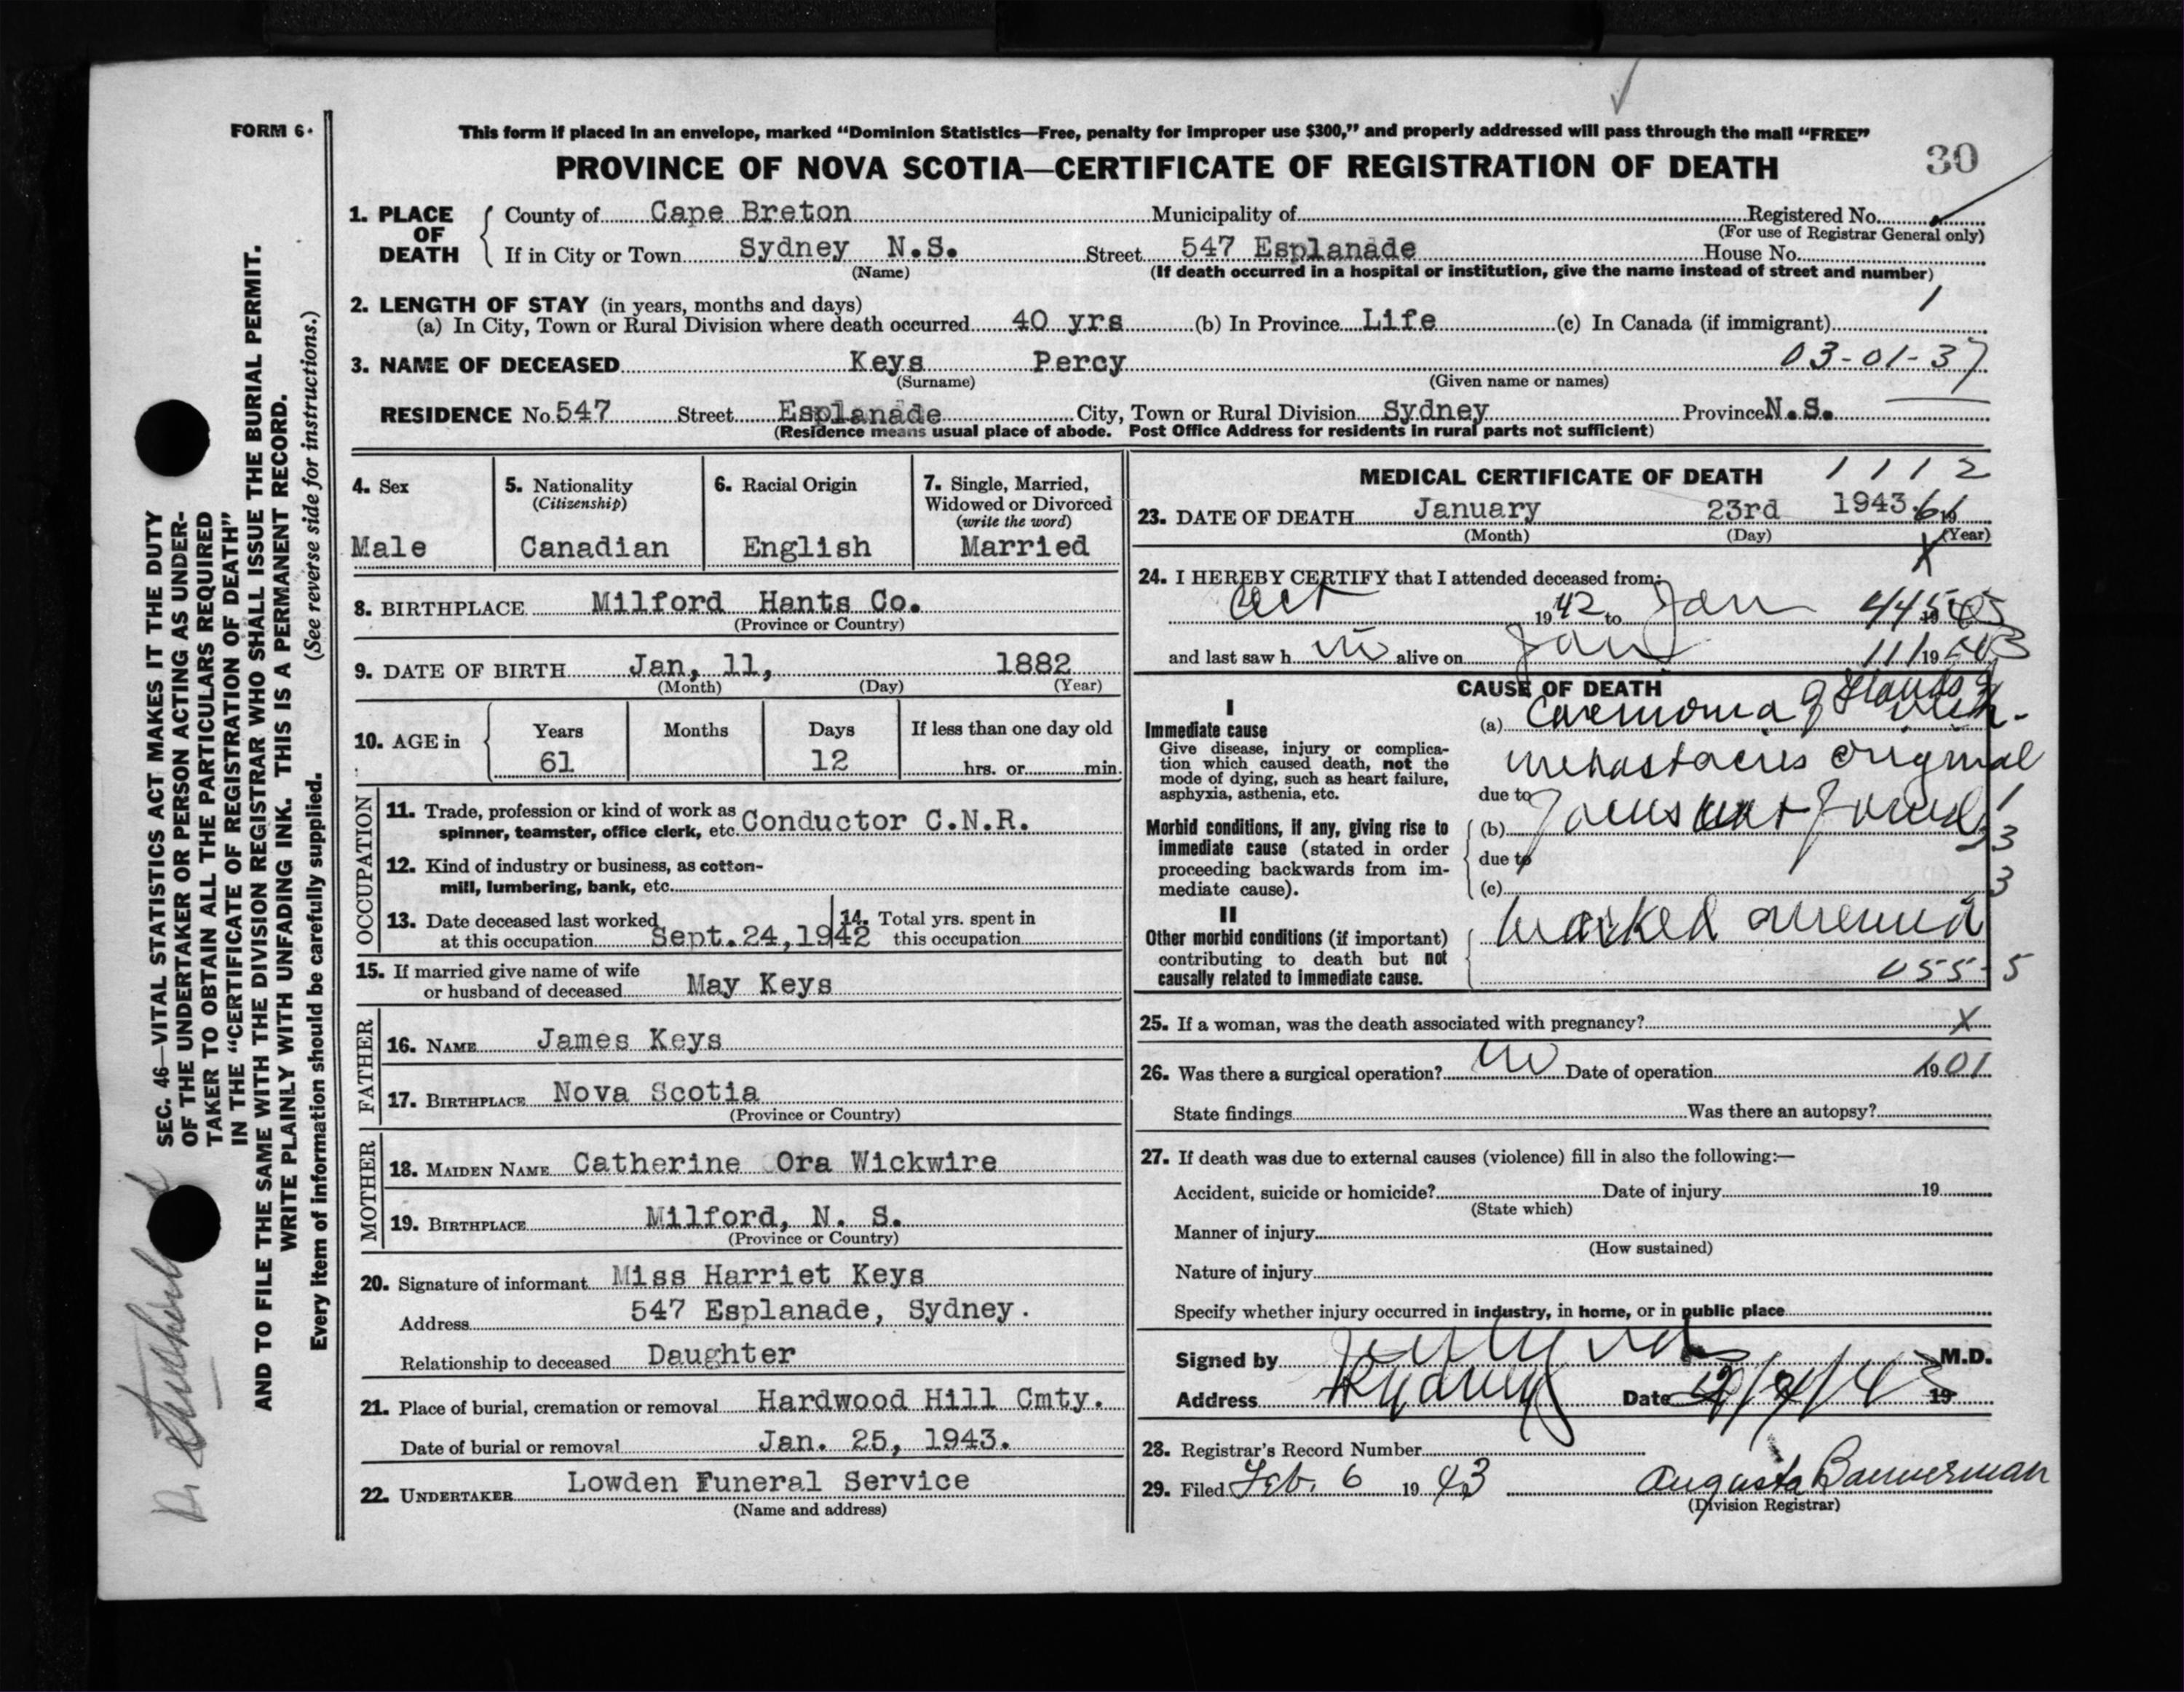 FORM 6.
This form if placed in an envelope, marked "Dominion Statistics—Free, penalty for improper use $300," and properly addressed will pass through the mail "FREE"
PROVINCE OF NOVA SCOTIA—CERTIFICATE OF REGISTRATION OF DEATH
30
1. PLACE OF DEATH
County of Cape Breton Municipality of Registered No.
(For use of Registrar General only)
If in City or Town Sydney N.S. Street 547 Esplanade House No.
(Name) (If death occurred in a hospital or institution, give the name instead of street and number)
2. LENGTH OF STAY (in years, months and days) 1
(a) In City, Town or Rural Division where death occurred 40 yrs (b) In Province Life (c) In Canada (if immigrant)
3. NAME OF DECEASED Keys Percy 03-01-37
(Surname) (Given name or names)
RESIDENCE No. 547 Street Esplanade City, Town or Rural Division Sydney Province N.S.
(Residence means usual place of abode. Post Office Address for residents in rural parts not sufficient)
4. Sex
Male
5. Nationality
(Citizenship)
Canadian
6. Racial Origin
English
7. Single, Married,
Widowed or Divorced
(write the word)
Married
8. BIRTHPLACE Milford Hants Co.
(Province or Country)
9. DATE OF BIRTH Jan, 11, 1882
(Month) (Day) (Year)
10. AGE in
Years Months Days If less than one day old
61 12 hrs. or min.
OCCUPATION
11. Trade, profession or kind of work as
spinner, teamster, office clerk, etc. Conductor C.N.R.
12. Kind of industry or business, as cotton-
mill, lumbering, bank, etc.
13. Date deceased last worked
at this occupation Sept.24,1942
14. Total yrs. spent in
this occupation
15. If married give name of wife
or husband of deceased May Keys
FATHER
16. NAME James Keys
17. BIRTHPLACE Nova Scotia
(Province or Country)
MOTHER
18. MAIDEN NAME Catherine Ora Wickwire
19. BIRTHPLACE Milford, N. S.
(Province or Country)
20. Signature of informant Miss Harriet Keys
Address 547 Esplanade, Sydney.
Relationship to deceased Daughter
21. Place of burial, cremation or removal Hardwood Hill Cmty.
Date of burial or removal Jan. 25, 1943.
22. UNDERTAKER Lowden Funeral Service
(Name and address)
MEDICAL CERTIFICATE OF DEATH 1112
23. DATE OF DEATH January 23rd 1943 61 19
(Month) (Day) (Year)
X
24. I HEREBY CERTIFY that I attended deceased from:
Oct 1942 to Jan 445 19
and last saw h alive on Jan 111 19 43
CAUSE OF DEATH
I
Immediate cause
Give disease, injury or complica-
tion which caused death, not the
mode of dying, such as heart failure,
asphyxia, asthenia, etc.
(a) Carcinoma of Glands
original
due to
Morbid conditions, if any, giving rise to
immediate cause (stated in order
proceeding backwards from im-
mediate cause).
(b) not found 1
due to 3
(c) 3
II
Other morbid conditions (if important)
contributing to death but not
causally related to immediate cause.
Marked anemia
055-5
25. If a woman, was the death associated with pregnancy? X
26. Was there a surgical operation? no Date of operation 1901
State findings Was there an autopsy?
27. If death was due to external causes (violence) fill in also the following:—
Accident, suicide or homicide? Date of injury 19
(State which)
Manner of injury
(How sustained)
Nature of injury
Specify whether injury occurred in industry, in home, or in public place
Signed by M.D.
Address Sydney Date 19
28. Registrar's Record Number
29. Filed Feb. 6 1943 Augusta Bannerman
(Division Registrar)
SEC. 46—VITAL STATISTICS ACT MAKES IT THE DUTY
OF THE UNDERTAKER OR PERSON ACTING AS UNDER-
TAKER TO OBTAIN ALL THE PARTICULARS REQUIRED
IN THE "CERTIFICATE OF REGISTRATION OF DEATH"
AND TO FILE THE SAME WITH THE DIVISION REGISTRAR WHO SHALL ISSUE THE BURIAL PERMIT.
WRITE PLAINLY WITH UNFADING INK. THIS IS A PERMANENT RECORD.
Every item of information should be carefully supplied. (See reverse side for instructions.)